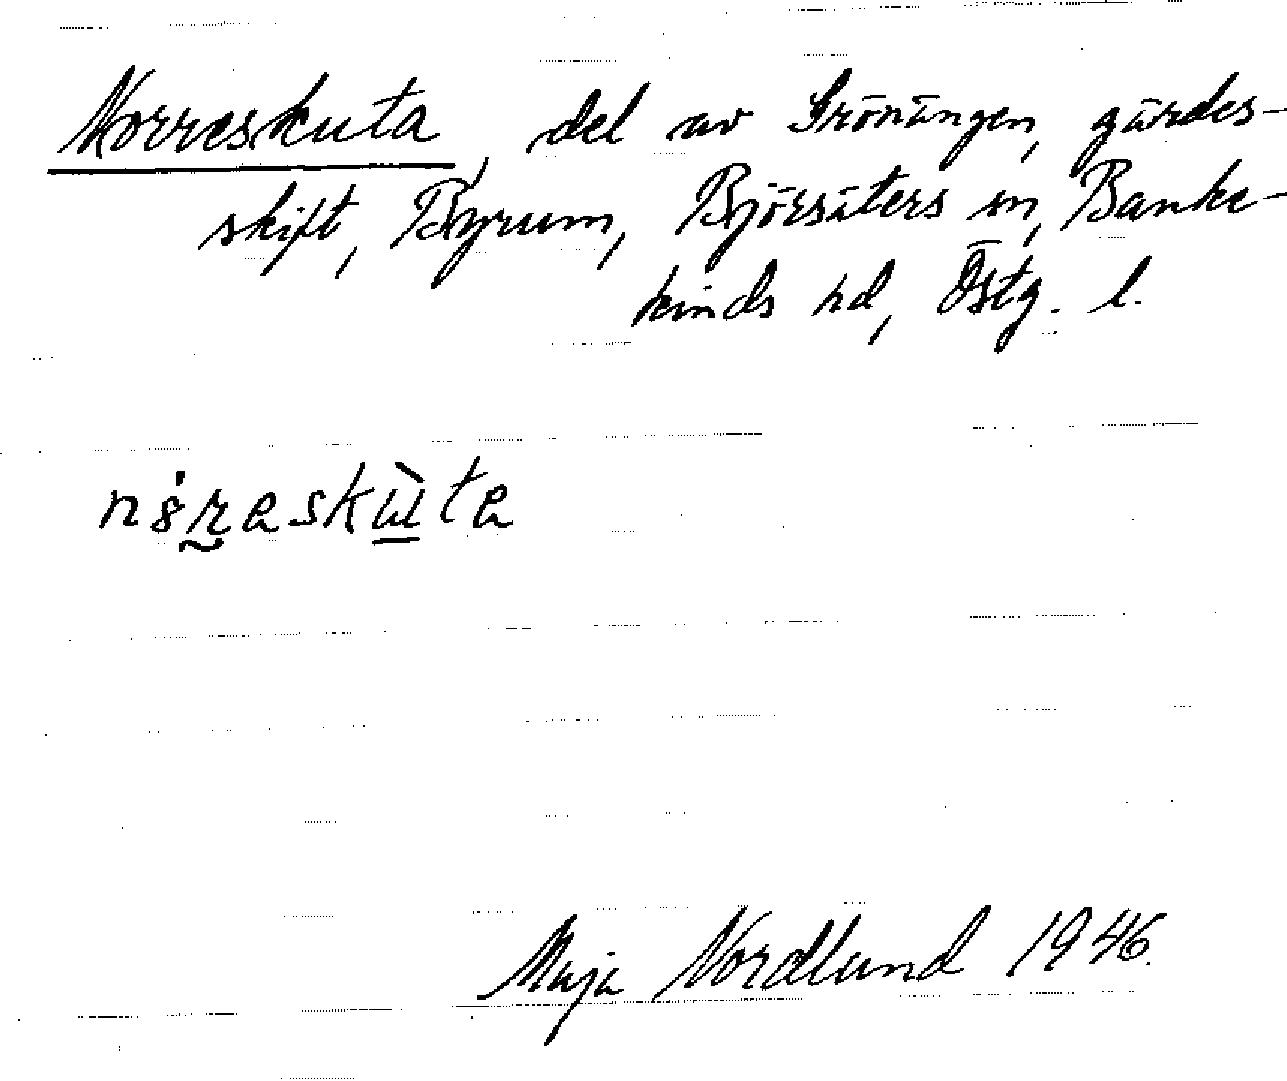 Norreskuta, del av Grönängen, gärdes-
skift, Byrum, Björsäters sn, Banke-
kinds hd, Östg. l.
Maja Nordlund 1946.